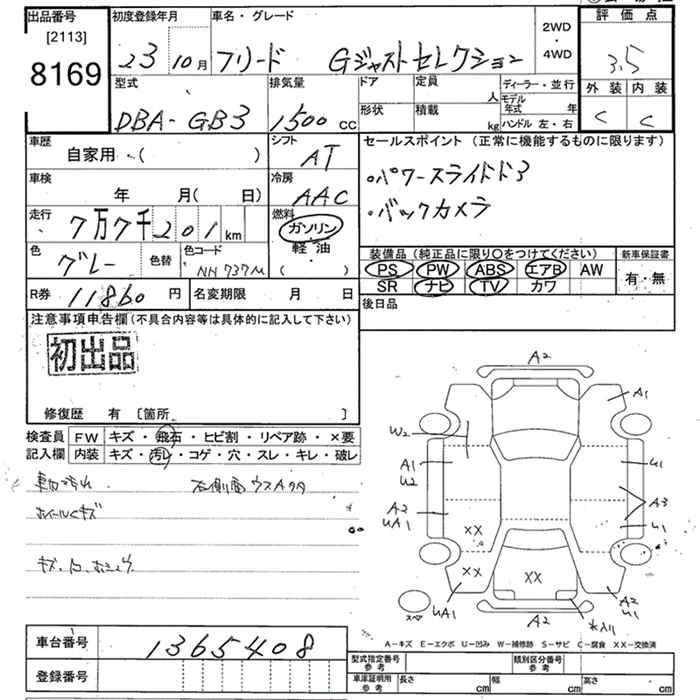 出品番号
[2113]
8169
初度登録年月
23 10月
車名・グレード
フリード Gジャストセレクション
2WD
・
4WD
評価点
3.5
外装 内装
C C
型式
DBA-GB3
排気量
1500 cc
ドア
定員
人
形状
積載
kg
ディーラー・並行
モデル年式 年
ハンドル 左・右
車歴
自家用・( )
シフト
AT
セールスポイント (正常に機能するものに限ります)
・パワースライドドア
・バックカメラ
車検
年 月( 日)
冷房
AAC
走行
7万7千201km
燃料
ガソリン
・
軽油
・( )
色
グレー
色替
色コード
NH737M
装備品 (純正品に限り〇をつけてください)
PS PW ABS エアB AW
SR ナビ TV カワ
新車保証書
有・無
R券 11860円
名変期限 月 日
後日品
注意事項申告欄 (不具合内容等は具体的に記入して下さい)
初出品
修復歴 有 [箇所 ]
検査員
記入欄
FW キズ・飛石・ヒビ割・リペア跡・×要
内装 キズ・汚レ・コゲ・穴・スレ・キレ・破レ
ホイールキズ
A2
A1
W2
A1
U2
U1
A2
UA1
A3
U1
XX
XX
XX
UA1
A2
U1
A2
スペア
A-キズ E-エクボ U-凹み W-補修跡 S-サビ C-腐食 XX-交換済
車台番号 1365408
登録番号
型式指定番号
参考
類別区分番号
参考
車庫証明用
参考
長さ cm
幅 cm
高さ cm